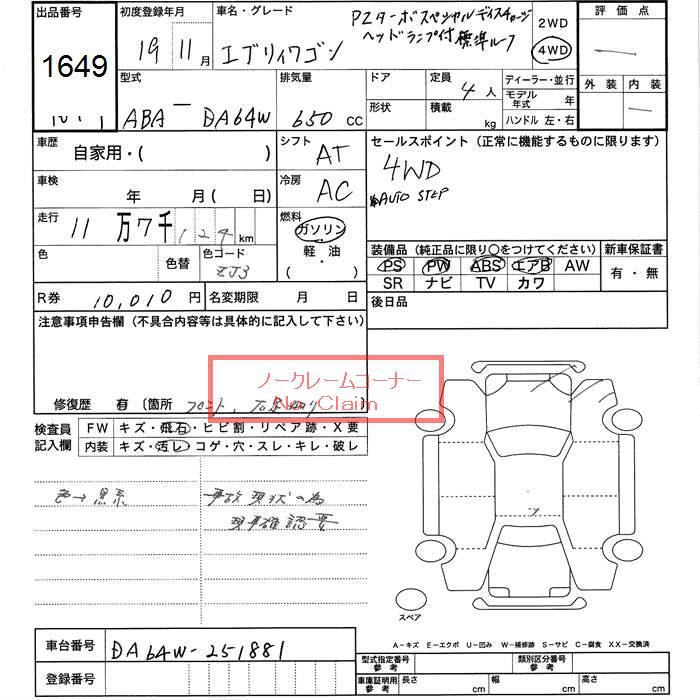 出品番号
1649
10.1
初度登録年月
19 11月
車名・グレード
エブリィワゴン
PZターボスペシャルディスチャージ
ヘッドランプ付 標準ルーフ
2WD
4WD
評価点
外装 内装
型式
ABA - DA64W
排気量
650 cc
ドア
形状
定員
4人
積載
kg
ディーラー・並行
モデル年式 年
ハンドル 左・右
車歴
自家用・( )
シフト
AT
車検
年 月( 日)
冷房
AC
走行
11万7千124km
燃料
ガソリン
軽・油
・( )
色
色替
色コード
ZJ3
R券 10,010円
名変期限 月 日
セールスポイント(正常に機能するものに限ります)
4WD
AUTO STEP
装備品(純正品に限り○をつけてください)
PS PW ABS エアB AW
SR ナビ TV カワ
新車保証書
有・無
後日品
注意事項申告欄(不具合内容等は具体的に記入して下さい)
ノークレームコーナー
No Claim
修復歴 有 〔箇所 フロント、
検査員記入欄
FW キズ・飛石・ヒビ割・リペア跡・X要
内装 キズ・汚レ・コゲ・穴・スレ・キレ・破レ
色→黒系
事故現状の為
現車確認要
スペア
A-キズ E-エクボ U-凹み W-補修跡 S-サビ C-腐食 XX-交換済
車台番号 DA64W-251881
登録番号
型式指定番号 参考
類別区分番号 参考
車庫証明用 参考
長さ cm
幅 cm
高さ cm